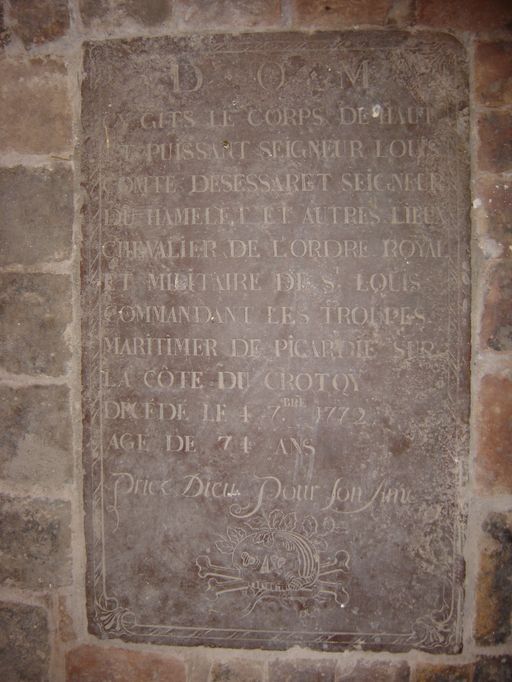 D O M
CY GITS LE CORPS DE HAUT
ET PUISSANT SEIGNEUR LOUIS
COMTE DESESSARET SEIGNEUR
DU HAMELET ET AUTRES LIEUX
CHEVALIER DE L'ORDRE ROYAL
ET MILITAIRE DE St LOUIS
COMMANDANT LES TROUPES
MARITIMER DE PICARDIE SUR
LA CÔTE DU CROTOY
DECÉDE LE 4 7.BRE 1772
AGE DE 74 ANS
Priez Dieu Pour son Ame